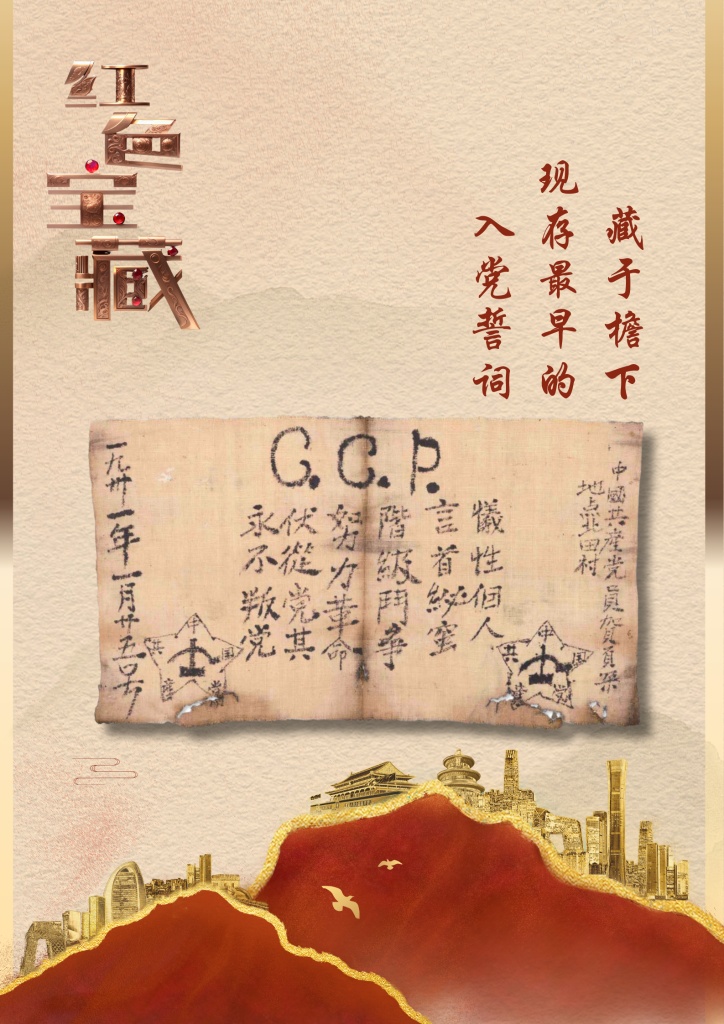 红色宝藏
藏于檐下
现存最早的
入党誓词
C.C.P.
中國共產党員賀頁
地点北田村
犠牲個人
言首秘蜜
階級鬥争
努力革命
伏從党其
永不叛党
一九卅一年一月廿五号
中国共產党
中国共產党